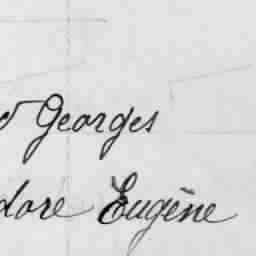 Georges
dore Eugène